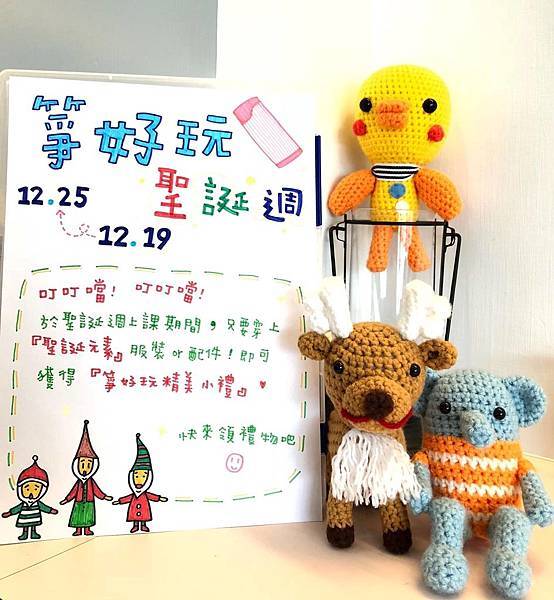 箏好玩
聖誕週
12.25
12.19
叮叮噹! 叮叮噹!
於聖誕週上課期間，只要穿上
『聖誕元素』服裝or配件！即可
獲得『箏好玩精美小禮』♥
快來領禮物吧